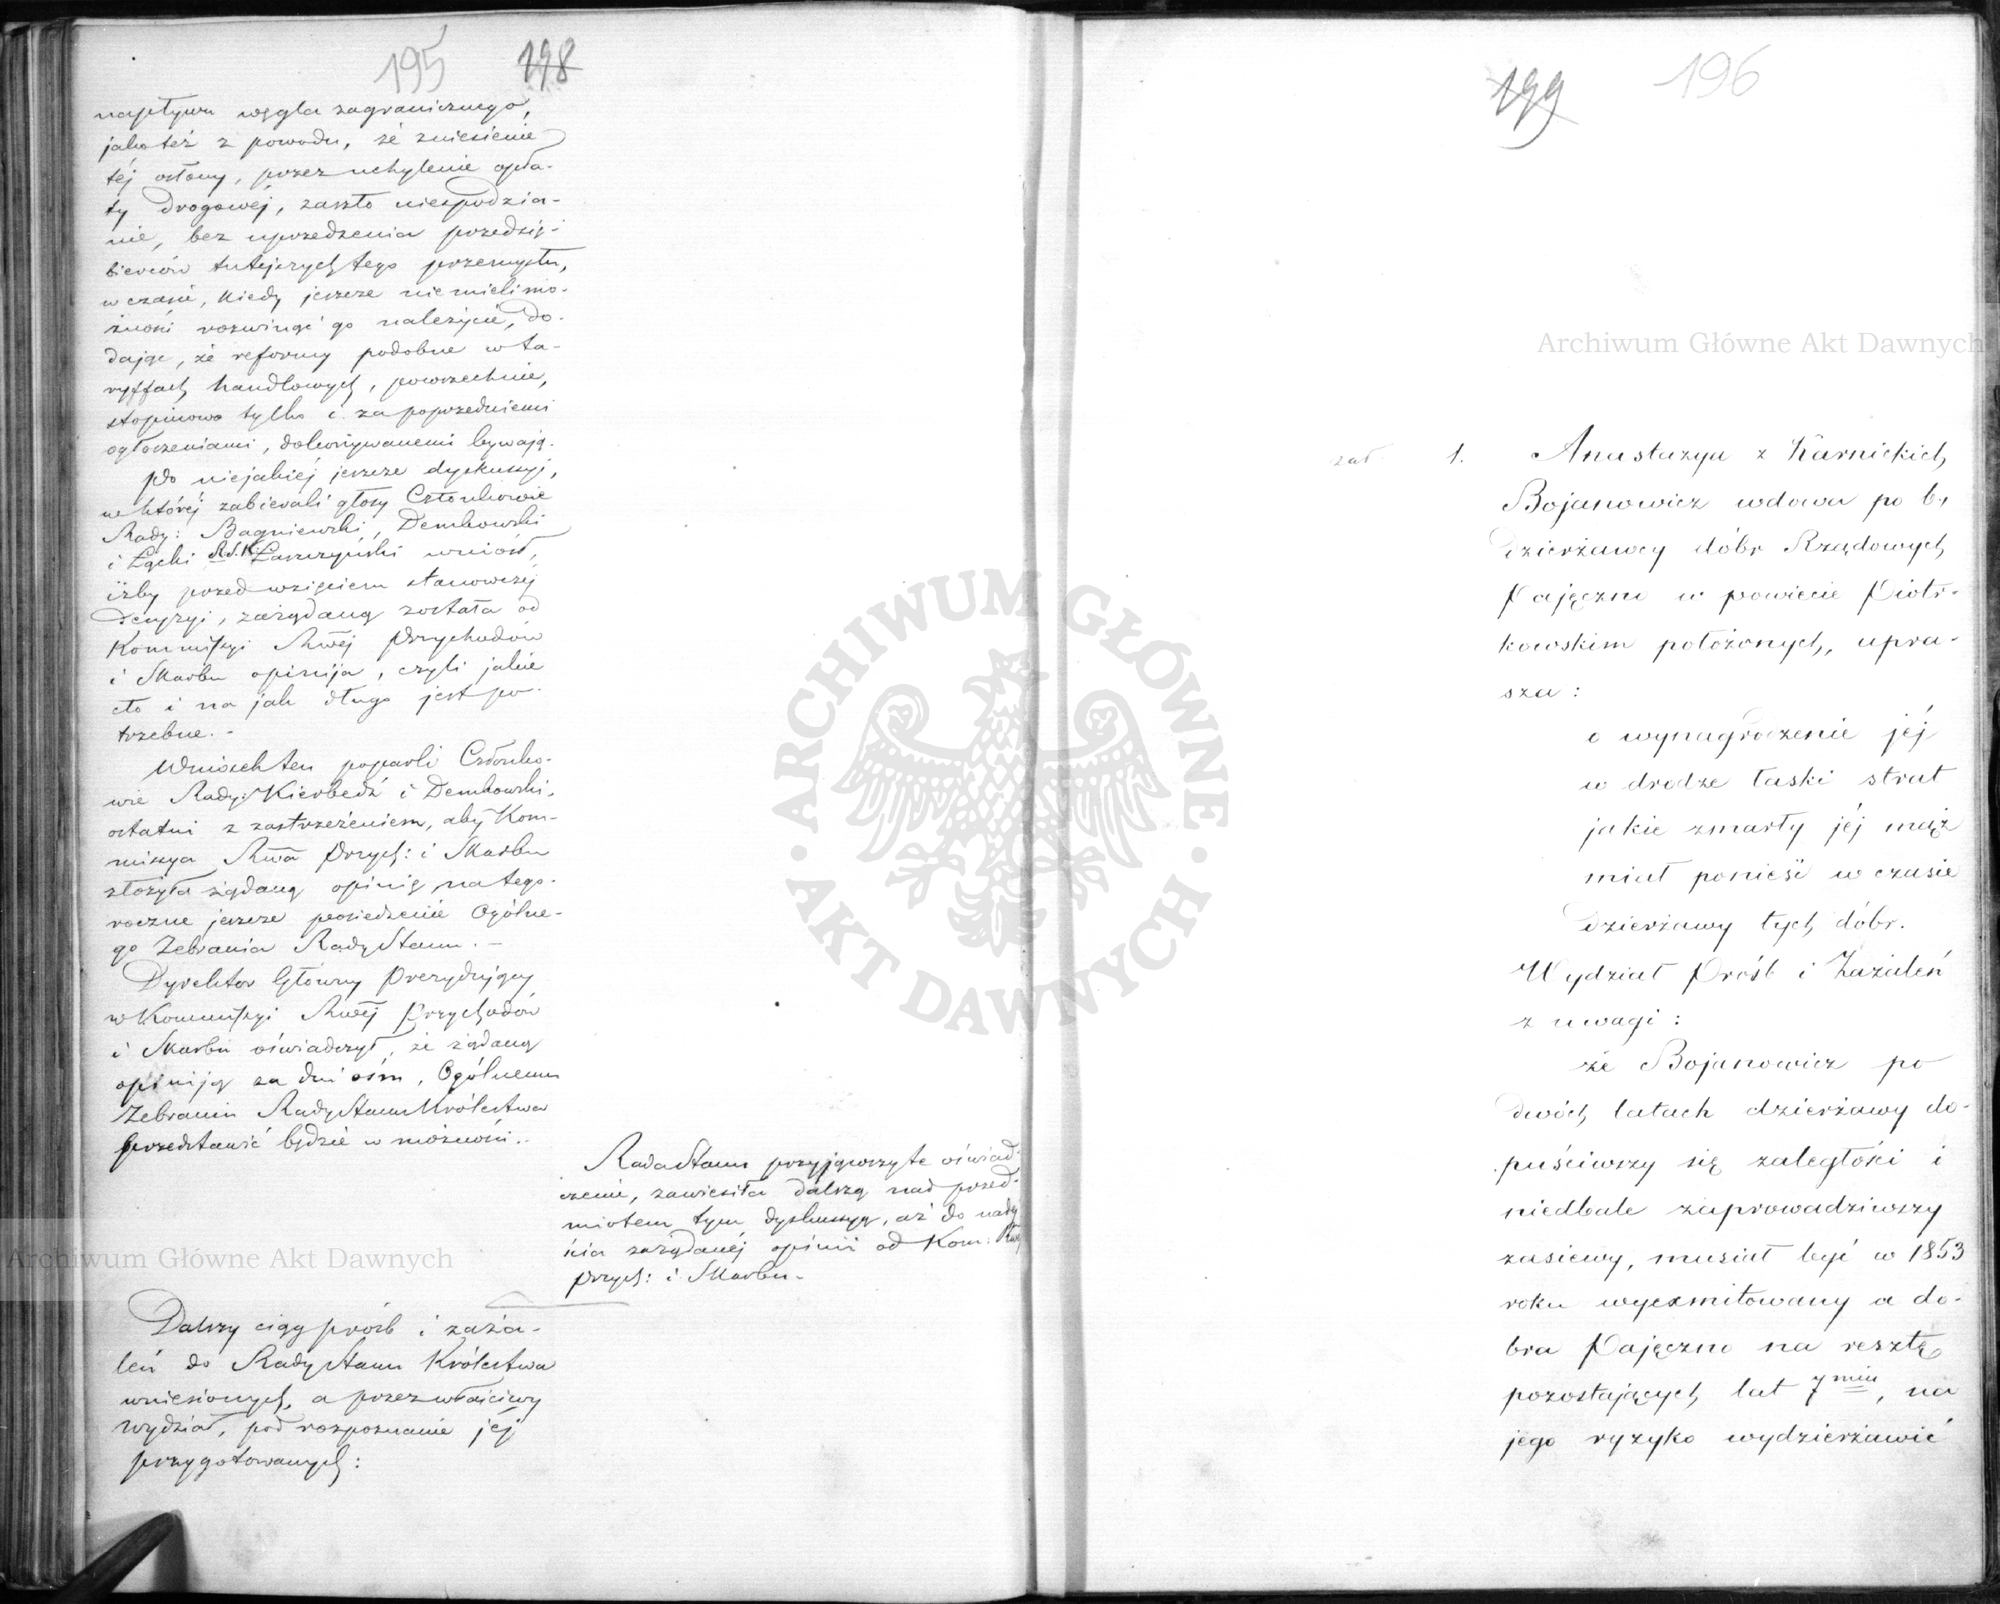 195 198
napływu węgla zagranicznego,
jako też z powodu, że zniesienie
téj osłony, przez uchylenie opła-
ty drogowéj, zaszło niespodzia-
nie, bez uprzedzenia przedsię-
bierców tutejszych tego przemysłu,
w czasie, kiedy jeszcze nie mieli mo-
żności rozwinąć go należycie, do-
dając, że reformy podobne w ta-
ryffach handlowych, powszechnie,
stopniowo tylko i za poprzedniemi
ogłoszeniami, dokonywanemi bywają.
Po niejakiéj jeszcze dyskussyi,
w któréj zabierali głosy Członkowie
Rady: Bagniewski, Dembowski
i Łącki R.S.K. Łaszczyński wniósł,
iżby przed wzięciem stanowczéj
decyzyi, zażądaną została od
Kommissyi Rwéj Przychodów
i Skarbu opinija, czyli jakie
cło i na jak długo jest po-
trzebne. -
Wniosek ten poparli Członko-
wie Rady: Kierbedź i Dembowski,
ostatni z zastrzeżeniem, aby Kom-
missya Rwa Przych: i Skarbu
złożyła żądaną opinię na tego-
roczne jeszcze posiedzenie Ogólne-
go Zebrania Rady Stanu. -
Dyrektor Główny Prezydujący
w Kommissyi Rwéj Przychodów
i Skarbu oświadczył, że żądaną
opiniją za dni ośm, Ogólnemu
Zebraniu Rady Stanu Królestwa
przedstawić będzie w możności. -
Rada Stanu przyjąwszy te oświad-
czenie, zawiesiła dalszą nad przed-
miotem tym dyskussyą, aż do nadej
ścia zażądanéj opinii od Kom: Rwéj
Przych: i Skarbu. -
Dalszy ciąg próśb i zaża-
leń do Rady Stanu Królestwa
wniesionych, a przez właściwy
Wydział, pod rozpoznanie jéj
przygotowanych:
199 196
zał. 1. Anastazya z Karnickich
Bojanowicz wdowa po b.
Dzierżawcy dóbr Rządowych
Pajęczno w powiecie Piotr-
kowskim położonych, upra-
sza:
o wynagrodzenie jéj
w drodze łaski strat
jakie zmarły jéj mąż
miał ponieść w czasie
Dzierżawy tych dóbr.
Wydział Próśb i Zażaleń
z uwagi:
że Bojanowicz po
dwóch latach dzierżawy do-
puściwszy się zaległości i
niedbale zaprowadziwszy
zasiewy, musiał być w 1853
roku wyexmitowany a do-
bra Pajęczno na resztę
pozostających lat 7miu, na
jego ryzyko wydzierżawić
Archiwum Główne Akt Dawnych
Archiwum Główne Akt Dawnych
ARCHIWUM GŁÓWNE AKT DAWNYCH